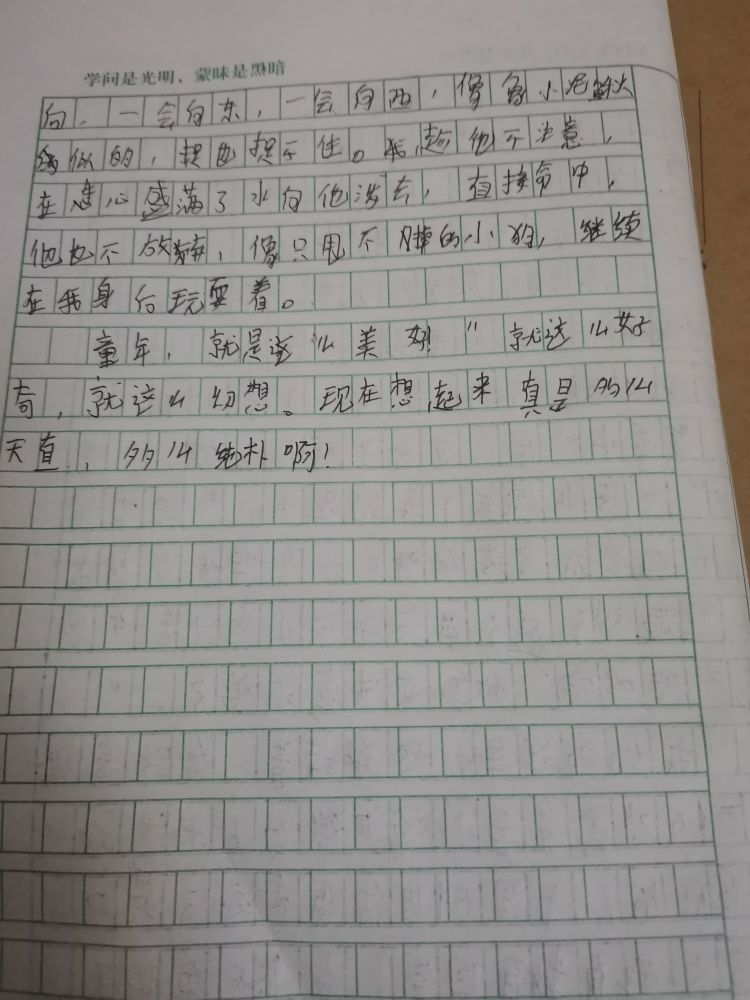 学问是光明、蒙昧是黑暗
向，一会向东，一会向西，像象小泥鳅
似的，捉也捉不住。我趁他不注意，
在心盛满了水向他泼去，直接命中，
他也不放弃，像只甩不掉的小狗，继续
在我身后玩耍着。
童年，就是这么美好！"就这么好
奇，就这么幻想。现在想起来真是多么
天真，多么纯朴啊！